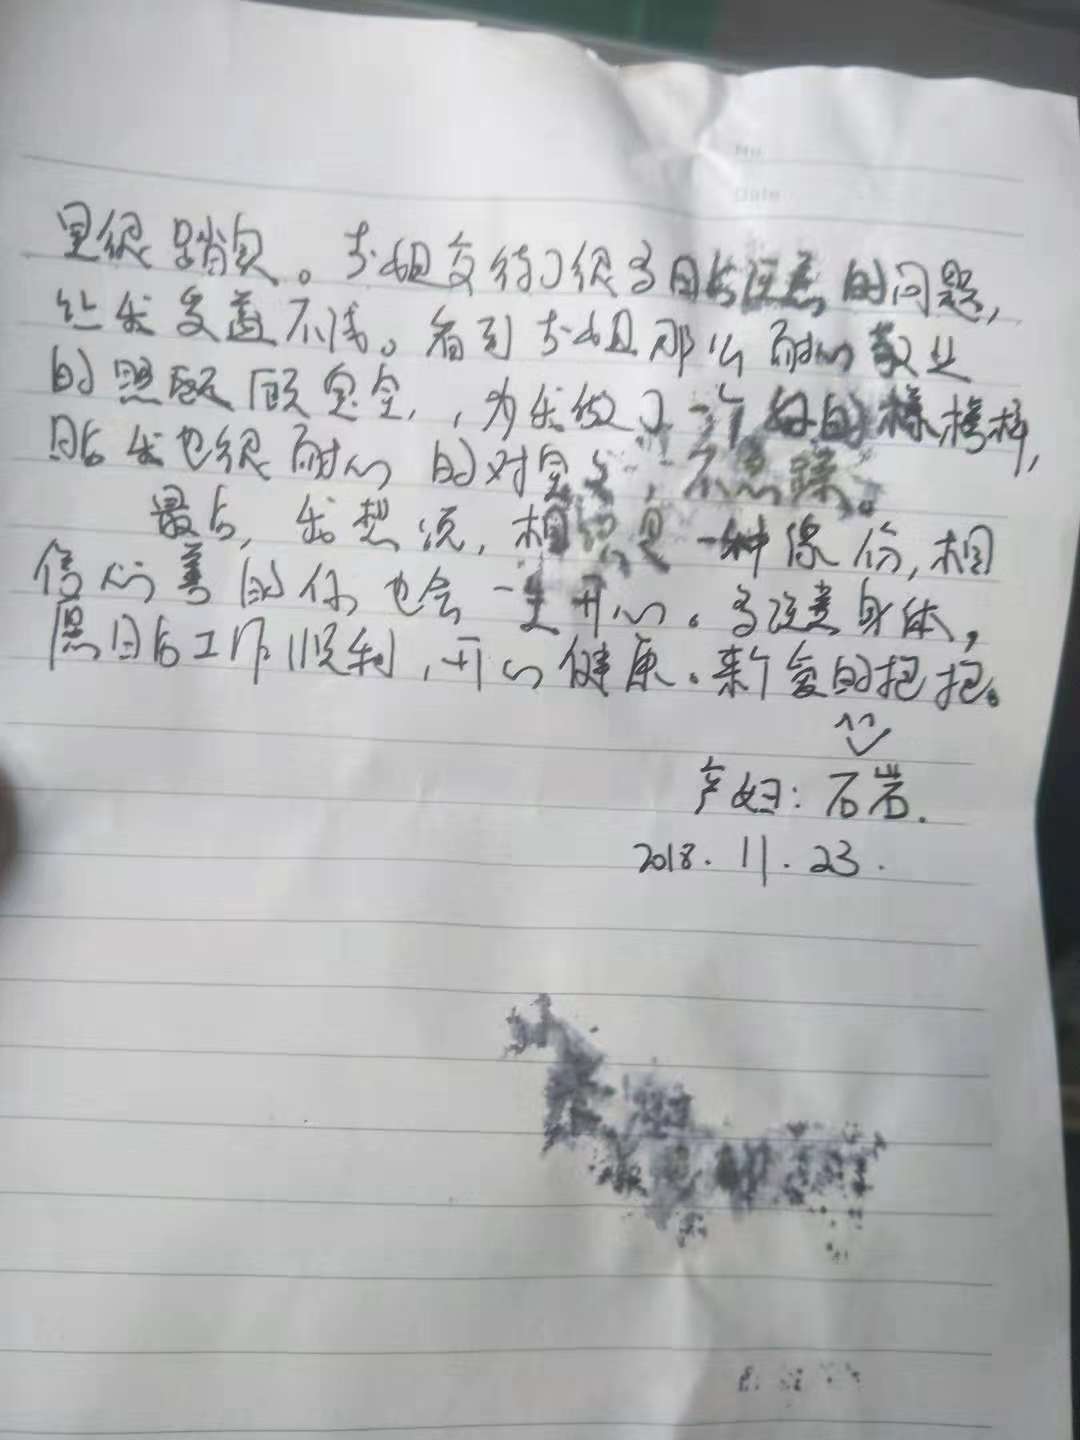 No.
Date
里很踏实。大姐交待了很多日后注意的问题,
让我受益不浅。看到大姐那么耐心敬业
的照顾宝宝,,为我做了一个好的榜样,
日后我也很耐心的对宝宝,不急躁。
最后,我想说,相识是一种缘份,相
信心善的你也会一生开心。多注意身体,
愿日后工作顺利,开心健康。新爱的抱抱。
产妇:石岩.
2018.11.23.